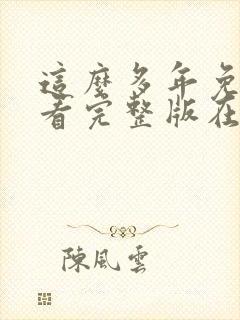 這麼多年免
看完整版在
陳風雲